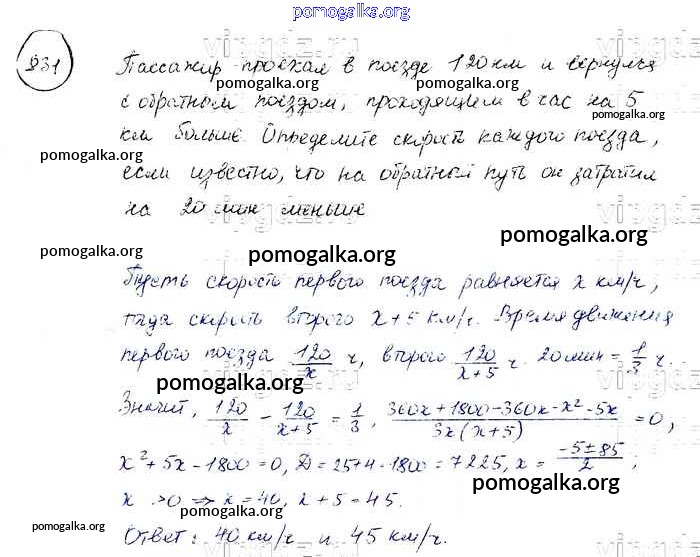 pomogalka.org
931
Пассажир проехал в поезде 120 км и вернулся
pomogalka.org pomogalka.org
с обратным поездом, проходящим в час на 5
pomogalka.org
км больше. Определите скорость каждого поезда,
pomogalka.org
если известно, что на обратный путь он затратил
на 20 мин меньше
pomogalka.org pomogalka.org pomogalka.org
Пусть скорость первого поезда равняется x км/ч,
тогда скорость второго x+5 км/ч. Время движения
первого поезда 120/x ч, второго 120/(x+5) ч. 20 мин = 1/3 ч.
pomogalka.org
Значит, 120/x - 120/(x+5) = 1/3, (360x+1800-360x-x²-5x)/(3x(x+5)) = 0,
x²+5x-1800=0, D=25+4·1800=7225, x = (-5±85)/2;
pomogalka.org
x >0 => x=40, x+5=45.
pomogalka.org
Ответ: 40 км/ч и 45 км/ч.
pomogalka.org